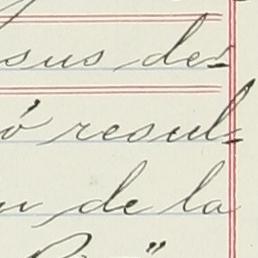 sus de-
ó resul-
de la